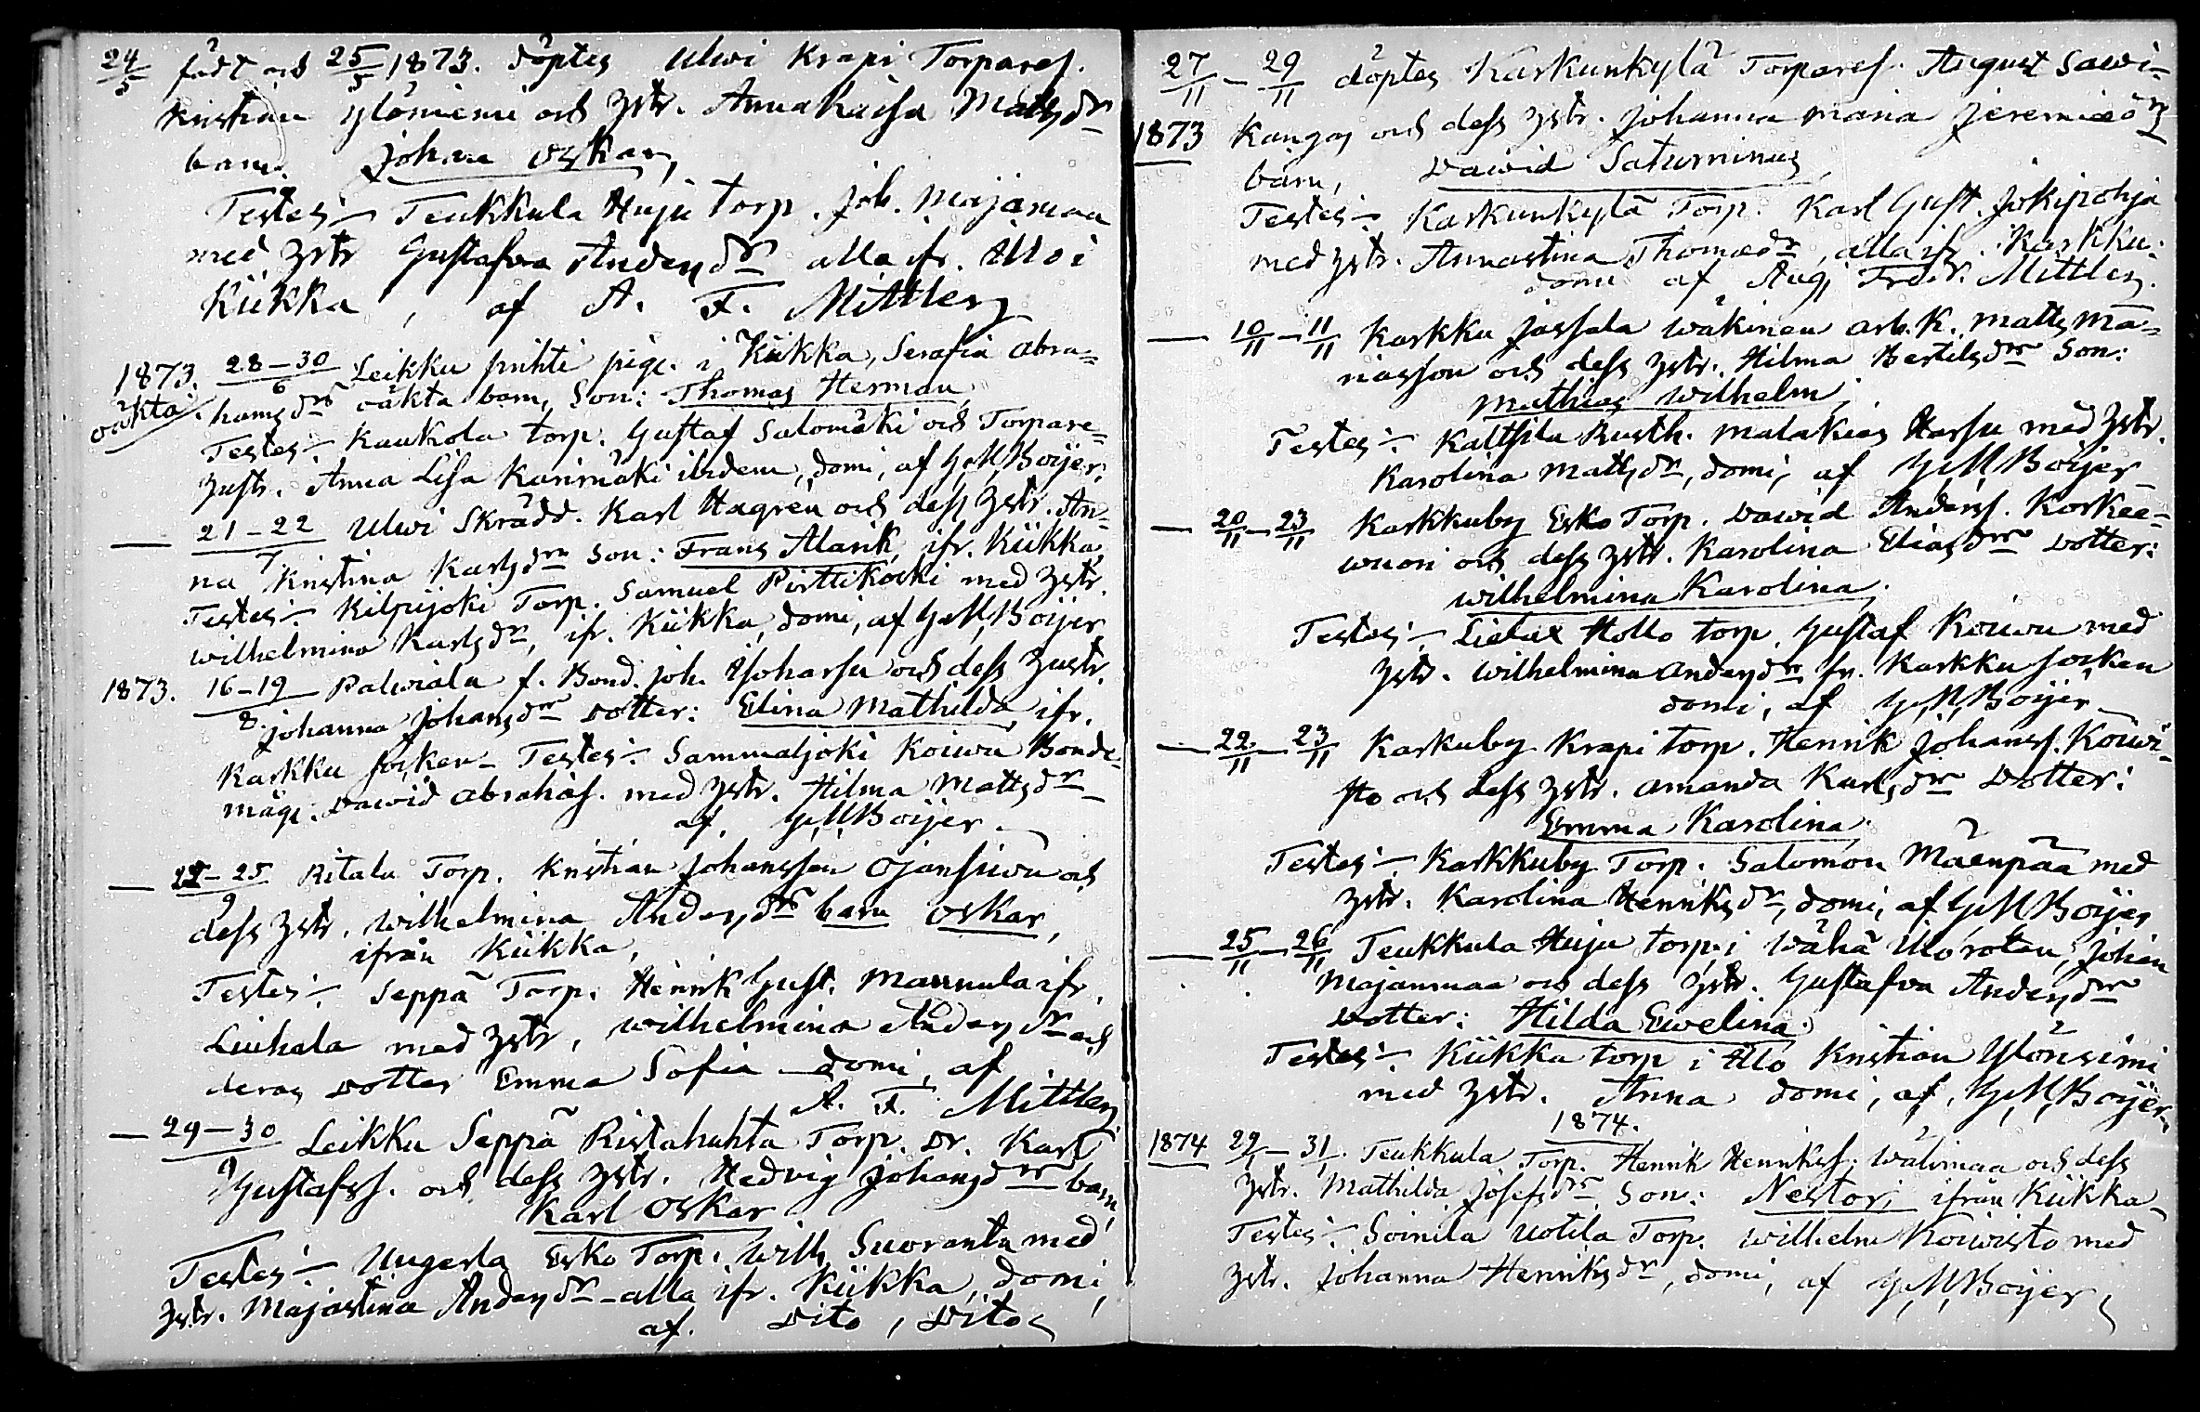 24/5 född och 25/5 1873. döptes Ulwi Krapi Torparef.
Kristian Ylöniemi och Hstr. Anna Kaisa Mattsdr
barn. Johan Oskar,
Testes:- Teukkula Huju torp. Joh. Majamaa
med hstr Gustafva Andersdr alla ifr. Illo i
Kiikka, af A. F. Mittler,
1873. 28-30/6 Leikku prihti pige. i Kiikka, Serafia Abra=
oäkta. hamsdrs oäkta barn, Son: Thomas Herman,
Testes:- Kaukola torp. Gustaf Salomäki och Torpare=
hustr. Anna Lisa Karimäki ibidem, domi, af G,M,Boijer.
— 21-22/7 Ulwi Skrädd. Karl Hagrén och dess hstr. An=
na Kristina Karlsdrs Son: Frans Alarik, ifr. Kiikka,
Testes:- Kilpijoki Torp. Samuel Pirttikoski med hstr.
Wilhelmina Karlsdr, ifr. Kiikka, domi, af G,M,Boijer
1873. 16-19/8 Palviala f. Bond. Joh. Isoharsu och dess hustr.
Johanna Johansdrs Dotter: Elina Mathilda, ifr.
Karkku socken - Testes:- Sammaljoki Koiwu Bonde=
mågc. Dawid Abrahäs. med hstr. Hilma Mattsdr -
af. G,M,Boijer.
— 22-25/9 Ritala Torp. Kristian Johansson Ojansiwu och
dess hstr. Wilhelmina Andersdrs barn Oskar,
ifrån Kiikka,
Testes:- Seppä Torp. Henrik Gust. Mannula ifr.
Liuhala med hstr, Wilhelmina Andersdr och
deras dotter Emma Sofia - domi, af
A. F. Mittler,
— 29-30/9 Leikku Seppä Ristahuhta Torp. Dr. Karl
Gustafss. och dess hstr. Hedvig Johansdrs barn,
Karl Oskar
Testes:- Ungerla Esko Torp. Wilh, Suoranta med
hstr. Majastina Andersdr - alla ifr. Kiikka, domi,
af. Dito, Dito,
27/11 - 29/11 döptes Karkunkylä Torparef. August Sawi=
1873 kangas och dess hstr. Johanna Maria Jeremiædrs
barn, Dawid Saturninus,
Testes:- Karkunkylä Torp. Karl Gust. Jokipohja
med hstr. Annastina Thomædr, alla ifr. Karkku.
domi af Aug, Fredr. Mittler.
— 10/11 - 11/11 Karkku Jassala Wäkinen arb.K. Matts Ma=
niasson och dess hstr. Hilma Bertilsdrs Son:
Mathias Wilhelm,
Testes:- Kaltsila Rusth. Malakias Harsu med hstr.
Karolina Mattsdr, domi, af G,M,Boijer
— 20/11 - 23/11 Karkkuby Esko Torp. Dawid Anderss. Korkee=
wuori och dess hstr. Karolina Eliasdrs Dotter:
Wilhelmina Karolina,
Testes:- Hollo torp. Gustaf Koiwu med
hstr. Wilhelmina Andersdr fr. Karkku socken
domi, af G,M,Boijer
— 22/11 - 23/11 Karkuby Krapi torp. Henrik Johanss. Koiwi=
sto och dess hstr. Amanda Karlsdrs Dotter:
Emma Karolina,
Testes:- Karkkuby Torp. Salomon Mäenpää med
hstr. Karolina Henriksdr, domi, af G,M,Boijer
— 25/11 - 26/11 Teukkula Huju torp. i Wähä Illo roten, Johan
Majanmaa och dess hstr. Gustafva Andersdrs
Dotter: Hilda Ewelina,
Testes:- Kiikka torp i Illo Kristian Ylönsimi
med hstr. Anna domi, af, G,M,Boijer,
1874.
1874 29/1 - 31/1. Teukkula Torp. Henrik Henrikss. Wälimaa och dess
hstr. Mathilda Josefsdrs Son: Nestori, ifrån Kiikka -
Testes:- Soinila Uotila Torp. Wilhelm Koiwisto med
hstr. Johanna Henriksdr, domi, af G,M,Boijer,